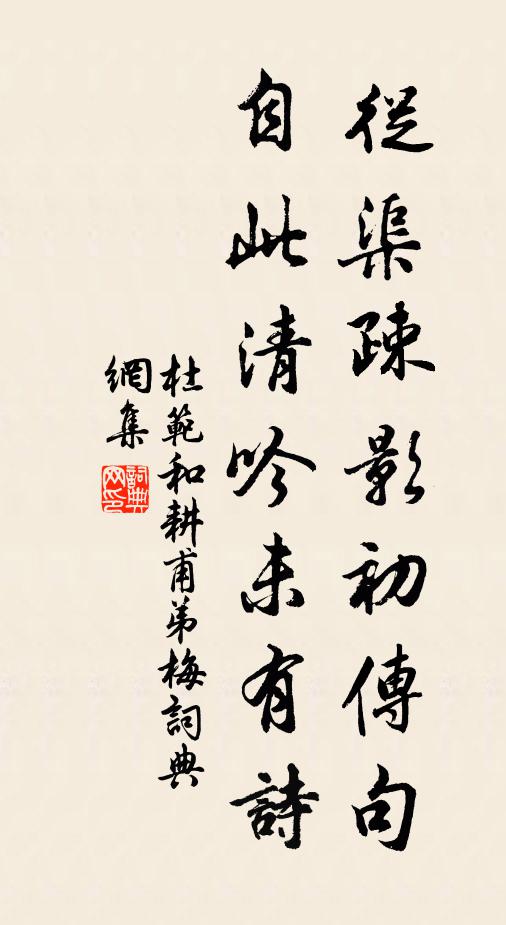 從渠疎影初傳句
自此清吟未有詩
杜範和耕甫弟梅詞典
網集
詞典網印